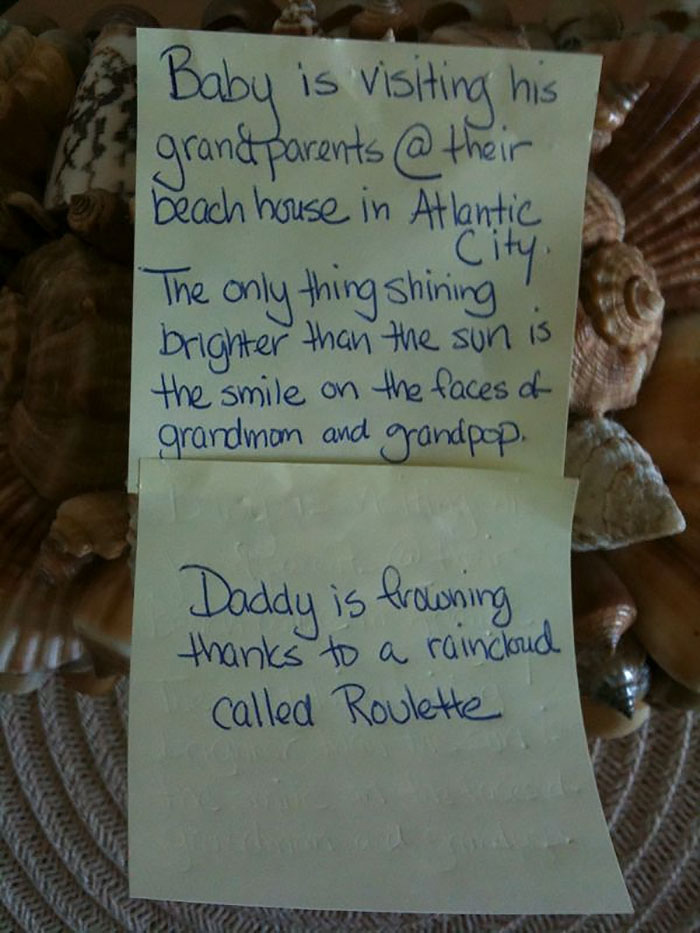 Baby is visiting his
grandparents @ their
beach house in Atlantic
City.
The only thing shining
brighter than the sun is
the smile on the faces of
grandmom and grandpop.
Daddy is frowning
thanks to a raincloud
called Roulette